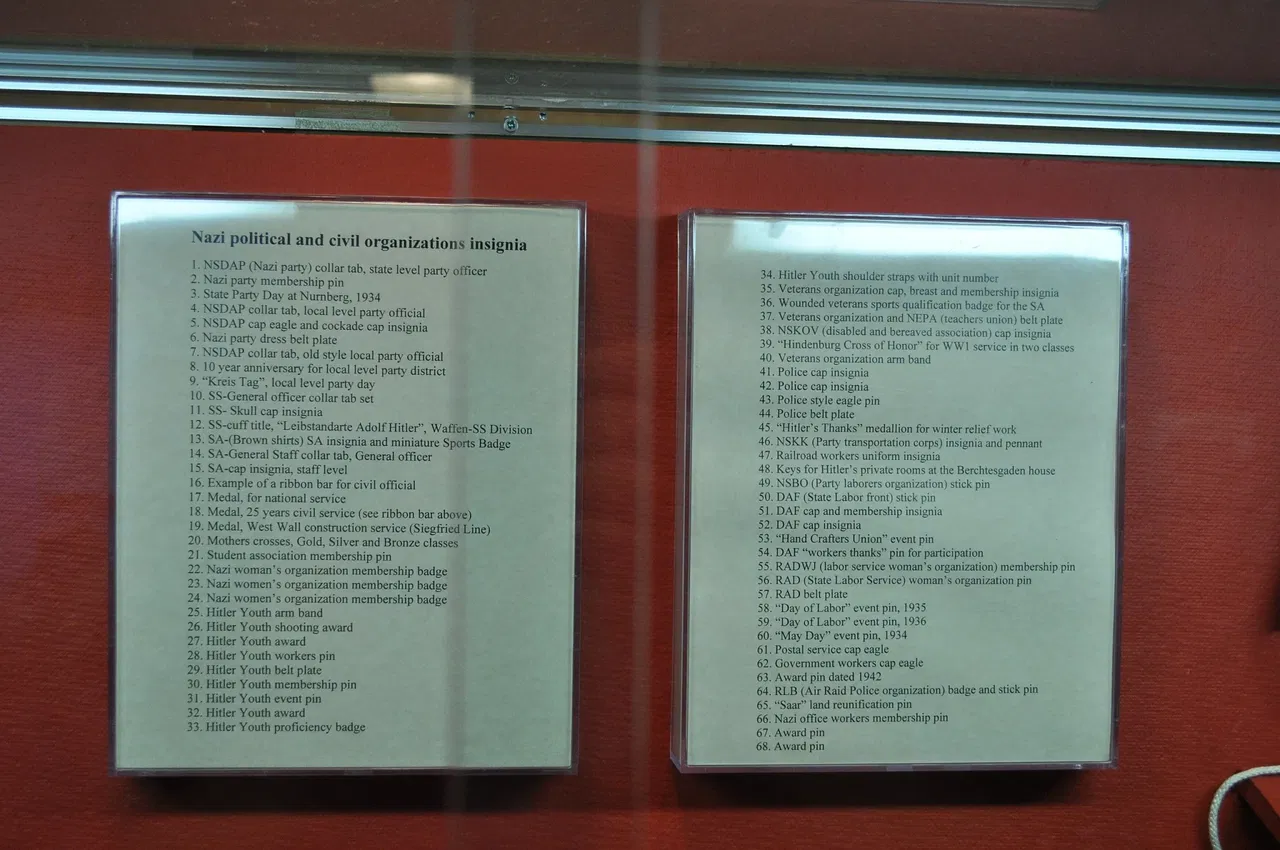 Nazi political and civil organizations insignia
1. NSDAP (Nazi party) collar tab, state level party officer
2. Nazi party membership pin
3. State Party Day at Nurnberg, 1934
4. NSDAP collar tab, local level party official
5. NSDAP cap eagle and cockade cap insignia
6. Nazi party dress belt plate
7. NSDAP collar tab, old style local party official
8. 10 year anniversary for local level party district
9. “Kreis Tag”, local level party day
10. SS-General officer collar tab set
11. SS- Skull cap insignia
12. SS-cuff title, “Leibstandarte Adolf Hitler”, Waffen-SS Division
13. SA-(Brown shirts) SA insignia and miniature Sports Badge
14. SA-General Staff collar tab, General officer
15. SA-cap insignia, staff level
16. Example of a ribbon bar for civil official
17. Medal, for national service
18. Medal, 25 years civil service (see ribbon bar above)
19. Medal, West Wall construction service (Siegfried Line)
20. Mothers crosses, Gold, Silver and Bronze classes
21. Student association membership pin
22. Nazi woman’s organization membership badge
23. Nazi women’s organization membership badge
24. Nazi women’s organization membership badge
25. Hitler Youth arm band
26. Hitler Youth shooting award
27. Hitler Youth award
28. Hitler Youth workers pin
29. Hitler Youth belt plate
30. Hitler Youth membership pin
31. Hitler Youth event pin
32. Hitler Youth award
33. Hitler Youth proficiency badge
34. Hitler Youth shoulder straps with unit number
35. Veterans organization cap, breast and membership insignia
36. Wounded veterans sports qualification badge for the SA
37. Veterans organization and NEPA (teachers union) belt plate
38. NSKOV (disabled and bereaved association) cap insignia
39. “Hindenburg Cross of Honor” for WW1 service in two classes
40. Veterans organization arm band
41. Police cap insignia
42. Police cap insignia
43. Police style eagle pin
44. Police belt plate
45. “Hitler’s Thanks” medallion for winter relief work
46. NSKK (Party transportation corps) insignia and pennant
47. Railroad workers uniform insignia
48. Keys for Hitler’s private rooms at the Berchtesgaden house
49. NSBO (Party laborers organization) stick pin
50. DAF (State Labor front) stick pin
51. DAF cap and membership insignia
52. DAF cap insignia
53. “Hand Crafters Union” event pin
54. DAF “workers thanks” pin for participation
55. RADWJ (labor service woman’s organization) membership pin
56. RAD (State Labor Service) woman’s organization pin
57. RAD belt plate
58. “Day of Labor” event pin, 1935
59. “Day of Labor” event pin, 1936
60. “May Day” event pin, 1934
61. Postal service cap eagle
62. Government workers cap eagle
63. Award pin dated 1942
64. RLB (Air Raid Police organization) badge and stick pin
65. “Saar” land reunification pin
66. Nazi office workers membership pin
67. Award pin
68. Award pin